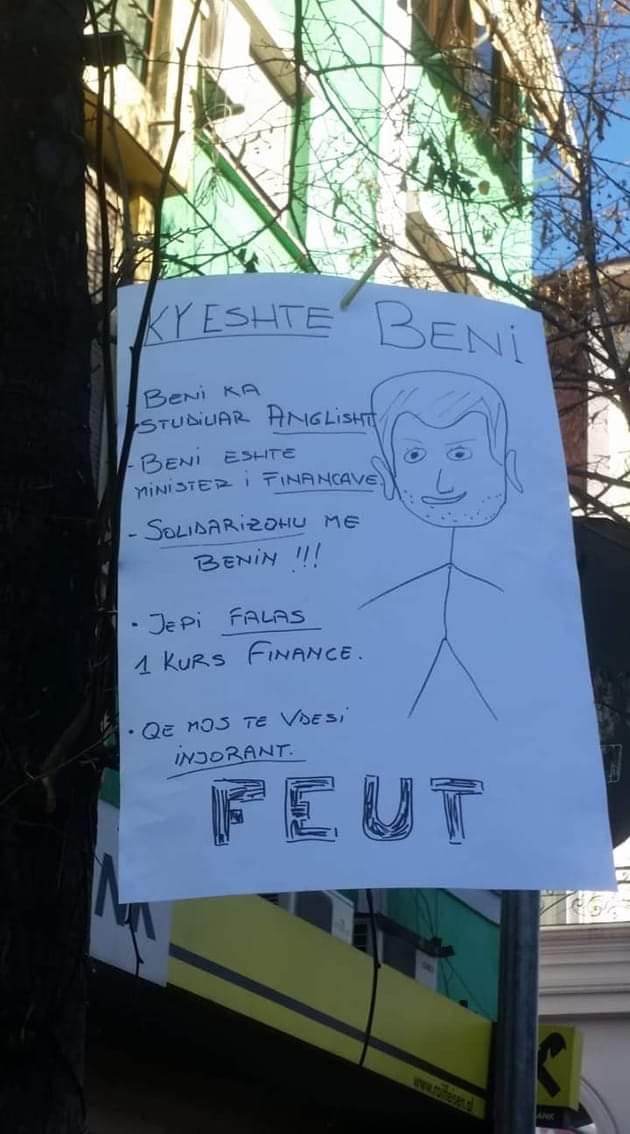 KY ESHTE BENI
BENI KA
STUDIUAR ANGLISHT
- BENI ESHTE
MINISTER I FINANCAVE
- SOLIDARIZOHU ME
BENIN !!!
• JEPI FALAS
1 KURS FINANCE.
• QE MOS TE VDESI
INJORANT.
FEUT
www.raiffeisen.al
ANK